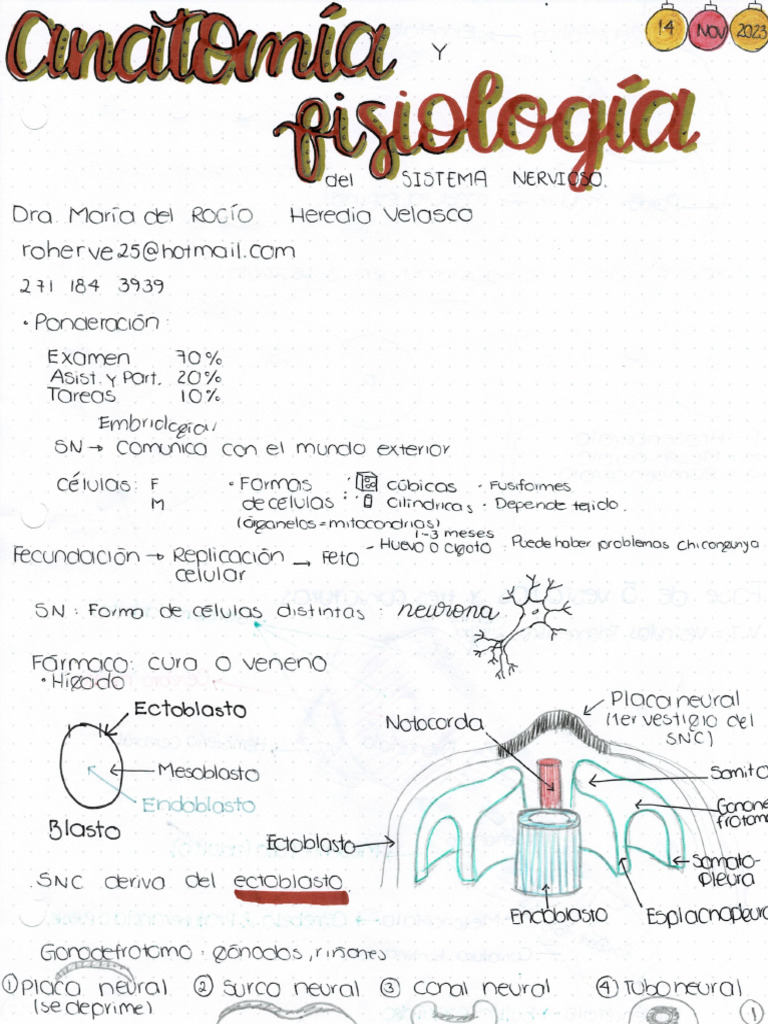 anatomía y
fisiología
del SISTEMA NERVIOSO.
14 NOV 2023
Dra. María del ROCÍO Heredia Velasco
roherve25@hotmail.com
271 184 3939
• Ponderación:
Examen 70%
Asist. y Part. 20%
Tareas 10%
Embriología
SN → Comunica con el mundo exterior
células: F
M
• Formas de células:
Cúbicas
Cilíndricas
• Fusiformes
• Depende tejido.
(órganelos=mitocondrias)
Fecundación → Replicación celular → Feto
1-3 meses
- Huevo o cigoto
• Puede haber problemas Chicongunya
SN: Forma de células distintas: neurona
Fármaco: cura o veneno
• Hígado
Ectoblasto
Mesoblasto
Endoblasto
Blasto
Notocorda
Placa neural
(1er vestigio del
SNC)
Somito
Gonone
frotomo
Somato-
pleura
Esplacnopleura
Endoblasto
Ectoblasto
SNC deriva del ectoblasto
Gonodefrotomo gónodas, riñones
① Placa neural
(se deprime)
② Surco neural
③ Canal neural
④ Tubo neural
①